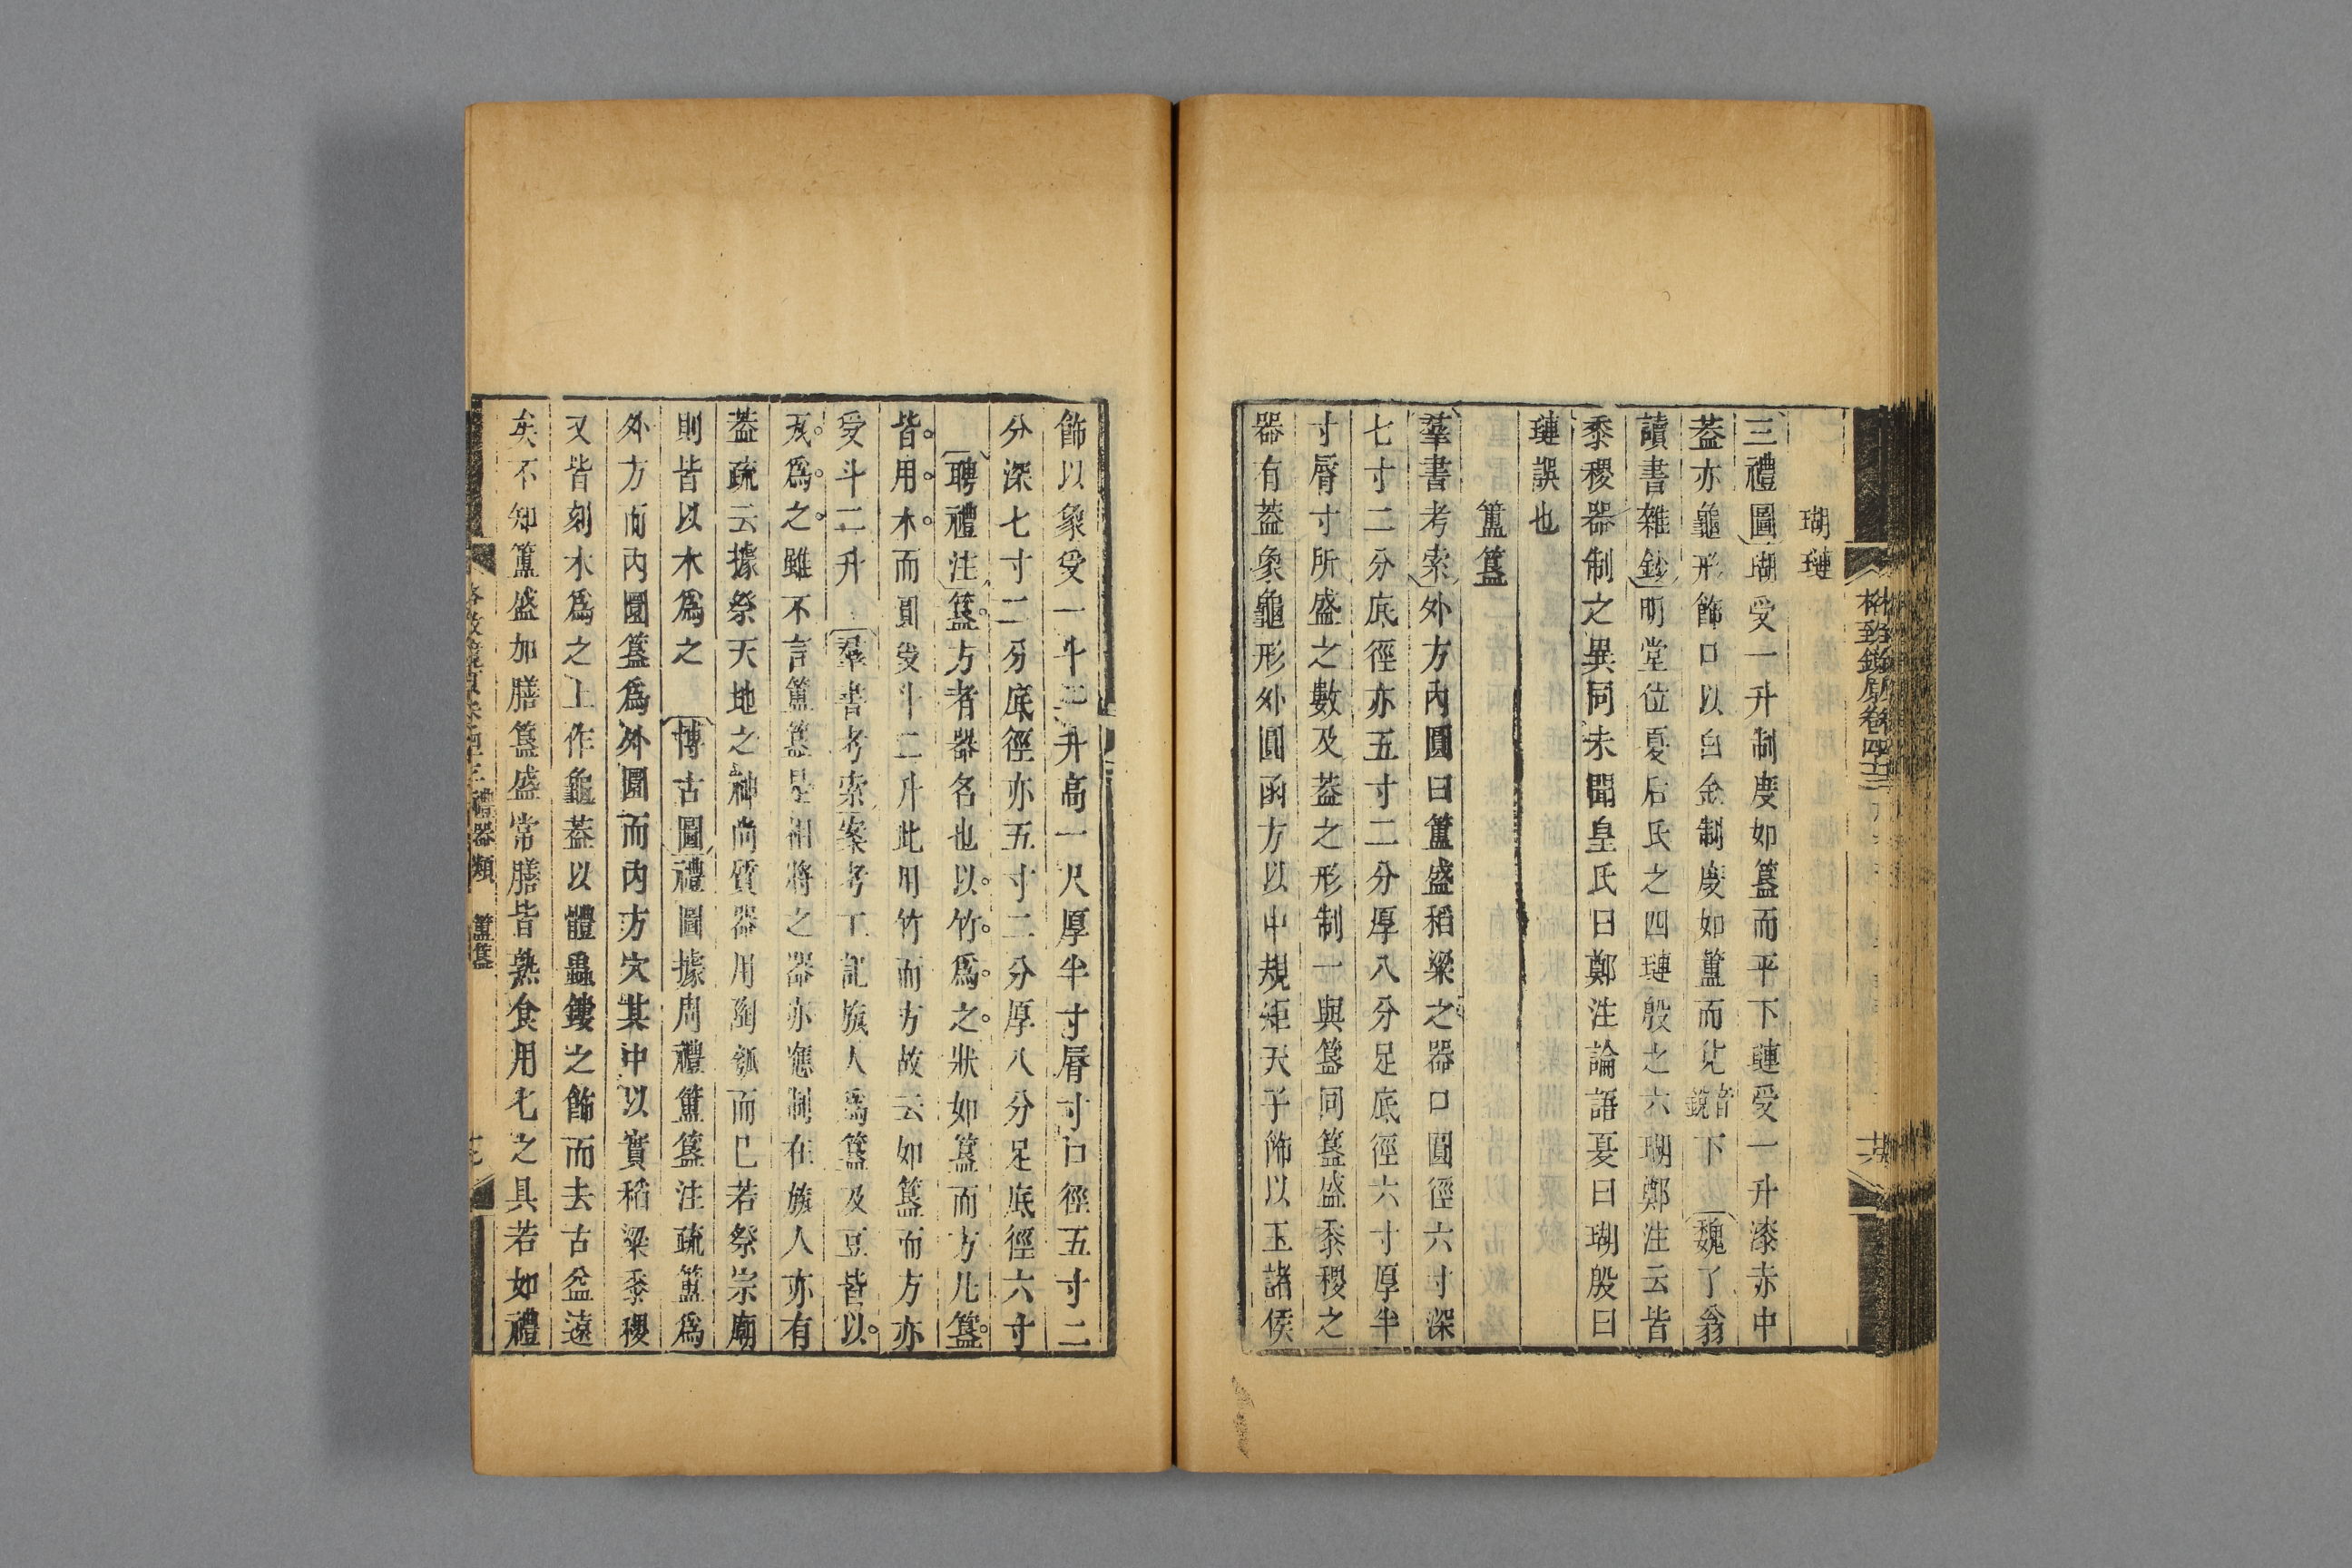 瑚璉
三禮圖瑚受一升制度如簋而平下璉受一升漆赤中
蓋亦龜形飾口以白金制度如簠而兊音銳下魏了翁
讀書雜鈔明堂位夏后氏之四璉殷之六瑚鄭注云皆
黍稷器制之異同未聞皇氏曰鄭注論語夏曰瑚殷曰
璉誤也
簠簋
羣書考索外方內圓曰簠盛稻梁之器口圓徑六寸深
七寸二分底徑亦五寸二分厚八分足底徑六寸厚半
寸脣寸所盛之數及蓋之形制一與簋同簋盛黍稷之
器有蓋象龜形外圓函方以中規矩天子飾以玉諸侯
飾以象受一斗二升高一尺厚半寸脣寸口徑五寸二
分深七寸二分底徑亦五寸二分厚八分足底徑六寸
聘禮注簋方者器名也以竹爲之狀如簋而方凡簋
皆用木而圓受斗二升此用竹而方故云如簋而方亦
受斗二升羣書考索案考工記旊人爲簋及豆皆以
瓦爲之雖不言簠簋是相將之器亦應制在旊人亦有
蓋疏云據祭天地之神尚質器用陶瓠而已若祭宗廟
則皆以木爲之博古圖禮圖據周禮簠簋注疏簠爲
外方而內圓簋爲外圓而內方穴其中以實稻粱黍稷
又皆刻木爲之上作龜蓋以體蟲鏤之飾而去古益遠
矣不知簠盛加膳簋盛常膳皆熟食用匕之具若如禮
格致鏡原卷四十三 禮器類 簠簋